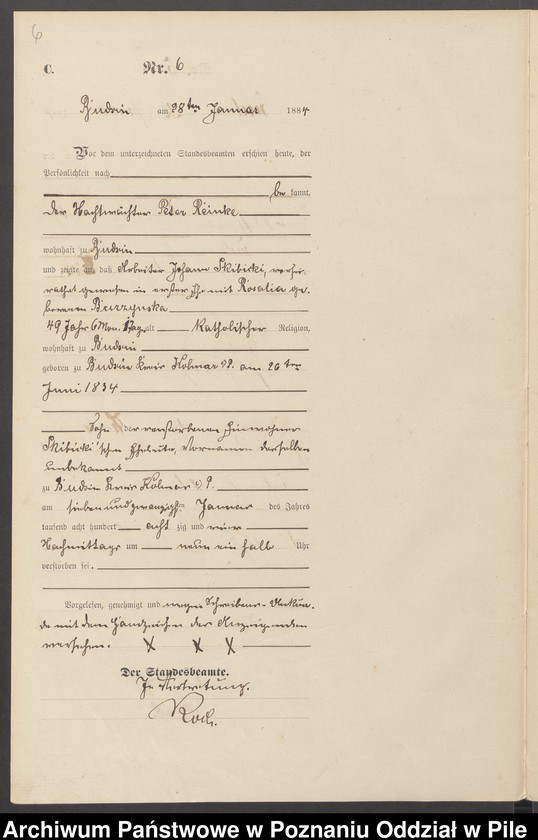 6
C. Nr. 6
Budsin am 28ten Januar 1884
Vor dem unterzeichneten Standesbeamten erschien heute, der
Persönlichkeit nach
be kannt,
der Nachtwächter Peter Reinke
wohnhaft zu Budsin
und zeigte an, daß Arbeiter Johann Skibicki, verhei-
rathet gewesen in erster Ehe mit Rosalia ge-
borenen Buzzynska
49 Jahr 6 Mon. alt Katholischer Religion,
wohnhaft zu Budsin
geboren zu Budsin Kreis Kolmar i/P. am 20ten
Juni 1834
Sohn der verstorbenen Einwohner
Skibicki'schen Eheleute, Vornamen derselben
unbekannt
zu Budsin Kreis Kolmar i/P.
am siebenundzwanzigsten Januar des Jahres
tausend acht hundert acht zig und vier
Nachmittags um neun ein halb Uhr
verstorben sei.
Vorgelesen, genehmigt und wegen Schreibens-Unkun-
de mit dem Handzeichen des Anzeigenden
versehen. X X X
Der Standesbeamte.
In Vertretung.
Koch.
Archiwum Państwowe w Poznaniu Oddział w Pile